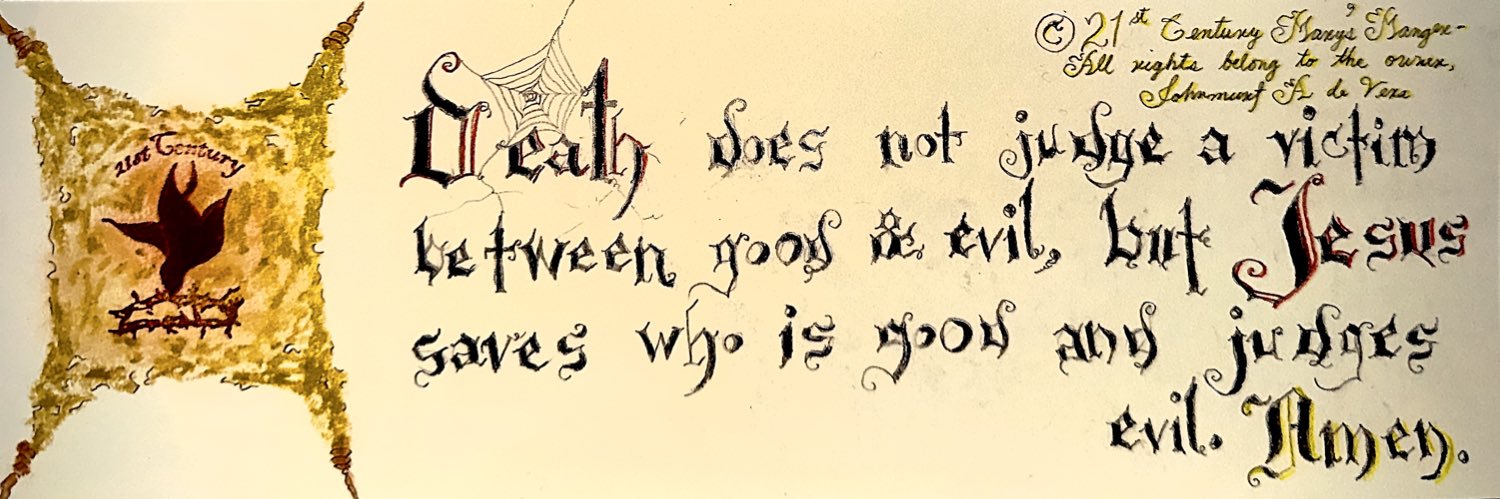 © 21st Century Mary's Manger-
All rights belong to the owner,
Johnmurf A de Vera
21st Century
Death does not judge a victim
between good & evil, but Jesus
saves who is good and judges
evil. Amen.